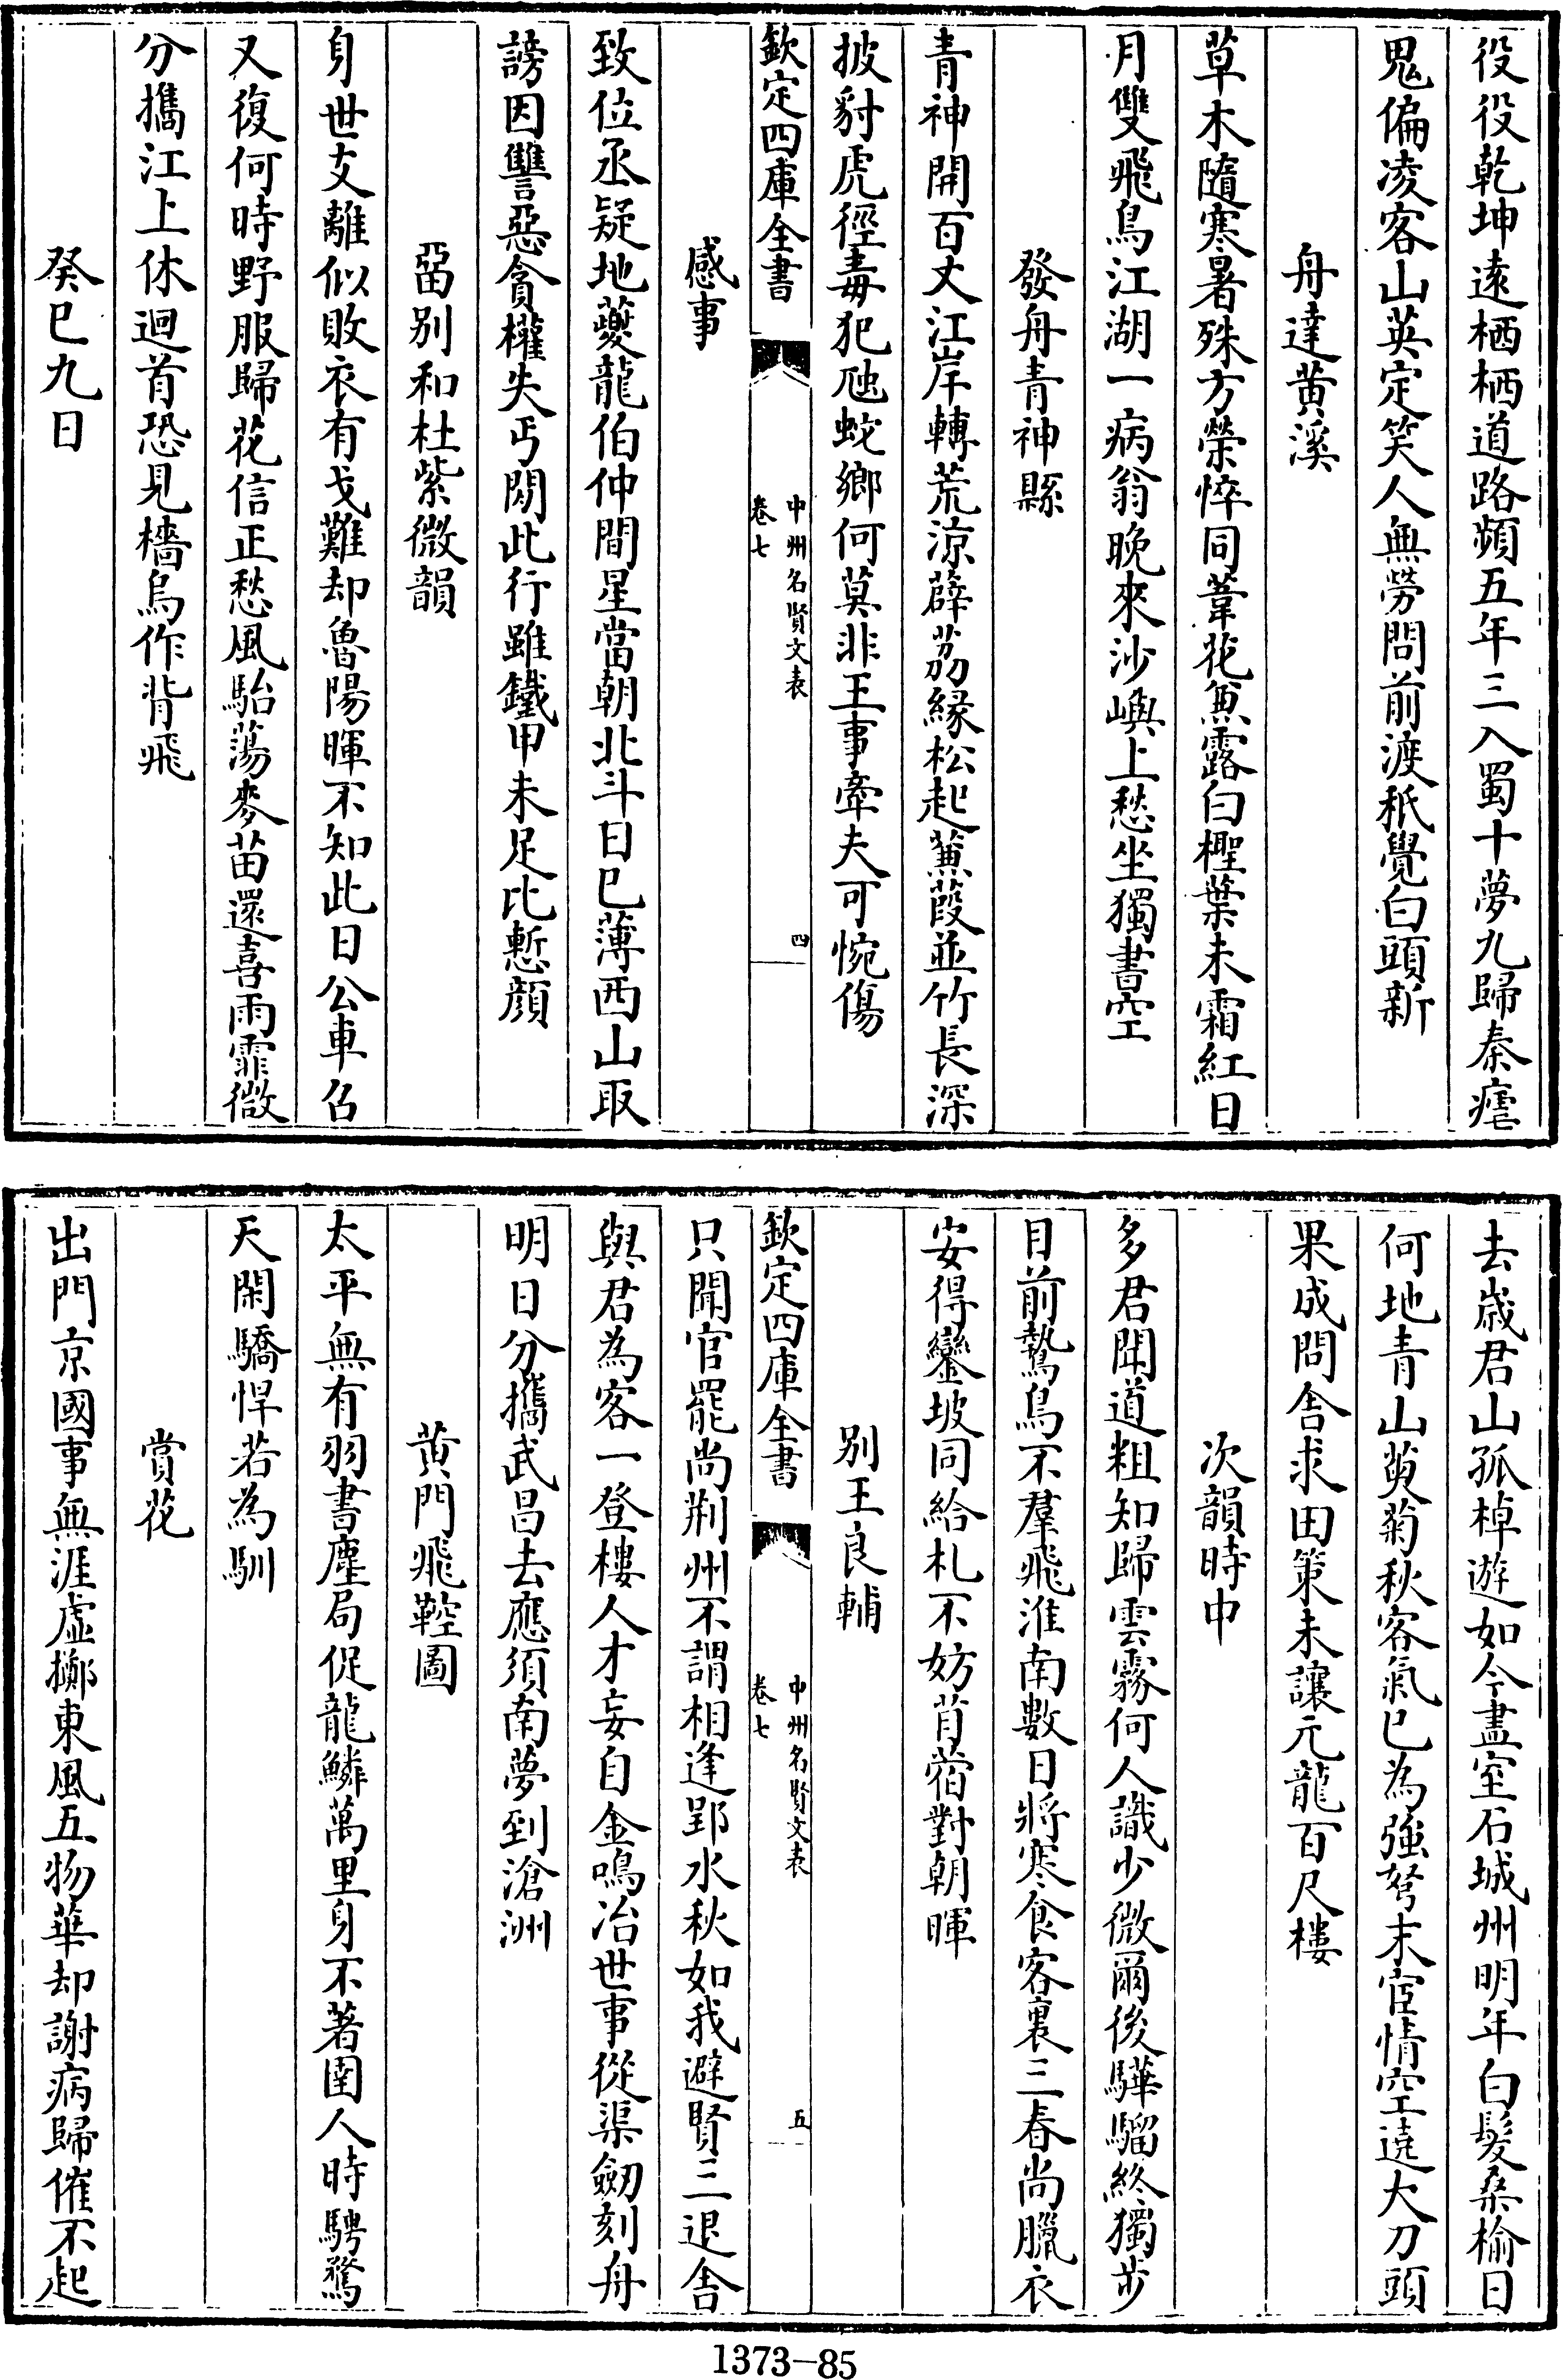 役役乾坤遠栖栖道路頻五年三入蜀十夢九歸秦瘧
鬼偏凌客山英定笑人無勞問前渡秖覺白頭新
舟達黄溪
草木隨寒暑殊方榮悴同葦花兼露白檉葉未霜紅日
月雙飛鳥江湖一病翁晚來沙嶼上愁坐獨書空
發舟青神縣
青神開百丈江岸轉荒涼薜茘緣松起蒹葭並竹長深
披豺虎徑毒犯虺蛇鄉何莫非王事牽夫可惋傷
欽定四庫全書
中州名賢文表
卷七
四
感事
致位丞疑地夔龍伯仲間星當朝北斗日已薄西山取
謗因讐惡貪權失丐閑此行雖鐵甲未足比慙顔
畱别和杜紫微韻
身世支離似敗衣有戈難却魯陽暉不知此日公車召
又復何時野服歸花信正愁風駘蕩麥苗還喜雨霏微
分攜江上休迴首恐見檣烏作背飛
癸巳九日
去歲君山孤棹遊如今盡室石城州明年白髮桑榆日
何地青山萸菊秋客氣已為強弩末宦情空遶大刀頭
果成問舍求田策未讓元龍百尺樓
次韻時中
多君聞道粗知歸雲霧何人識少微爾後驊騮終獨步
目前鷙鳥不羣飛淮南數日將寒食客裏三春尚臘衣
安得鑾坡同給札不妨苜蓿對朝暉
别王良輔
欽定四庫全書
中州名賢文表
卷七
五
只聞官罷尚荆州不謂相逢郢水秋如我避賢三退舍
與君為客一登樓人才妄自金鳴冶世事從渠劒刻舟
明日分攜武昌去應須南夢到滄洲
黄門飛鞚圖
太平無有羽書塵局促龍鱗萬里身不著圉人時騁騖
天閑驕悍若為馴
賞花
出門京國事無涯虛擲東風五物華却謝病歸催不起
1373—85